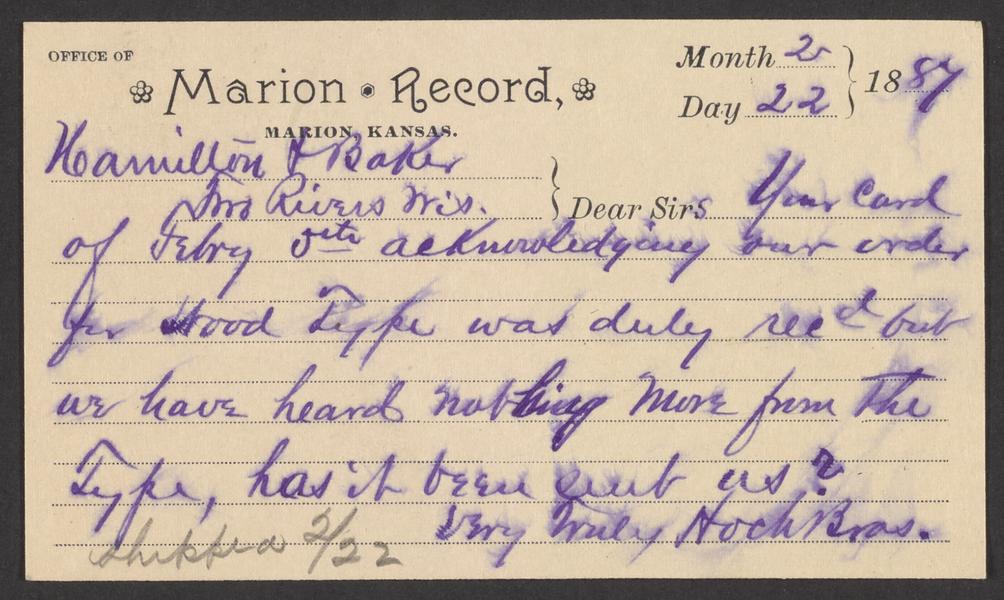 OFFICE OF
Marion Record,
MARION, KANSAS.
Month 2
Day 22
1887
Hamilton & Baker
Two Rivers Wis.
Dear Sirs Your Card
of Febry 5th acknowledging our order
for Wood Type was duly recd but
we have heard nothing more from the
Type, has it been sent us?
Very Truly Hoch Bros.
shipped 2/22